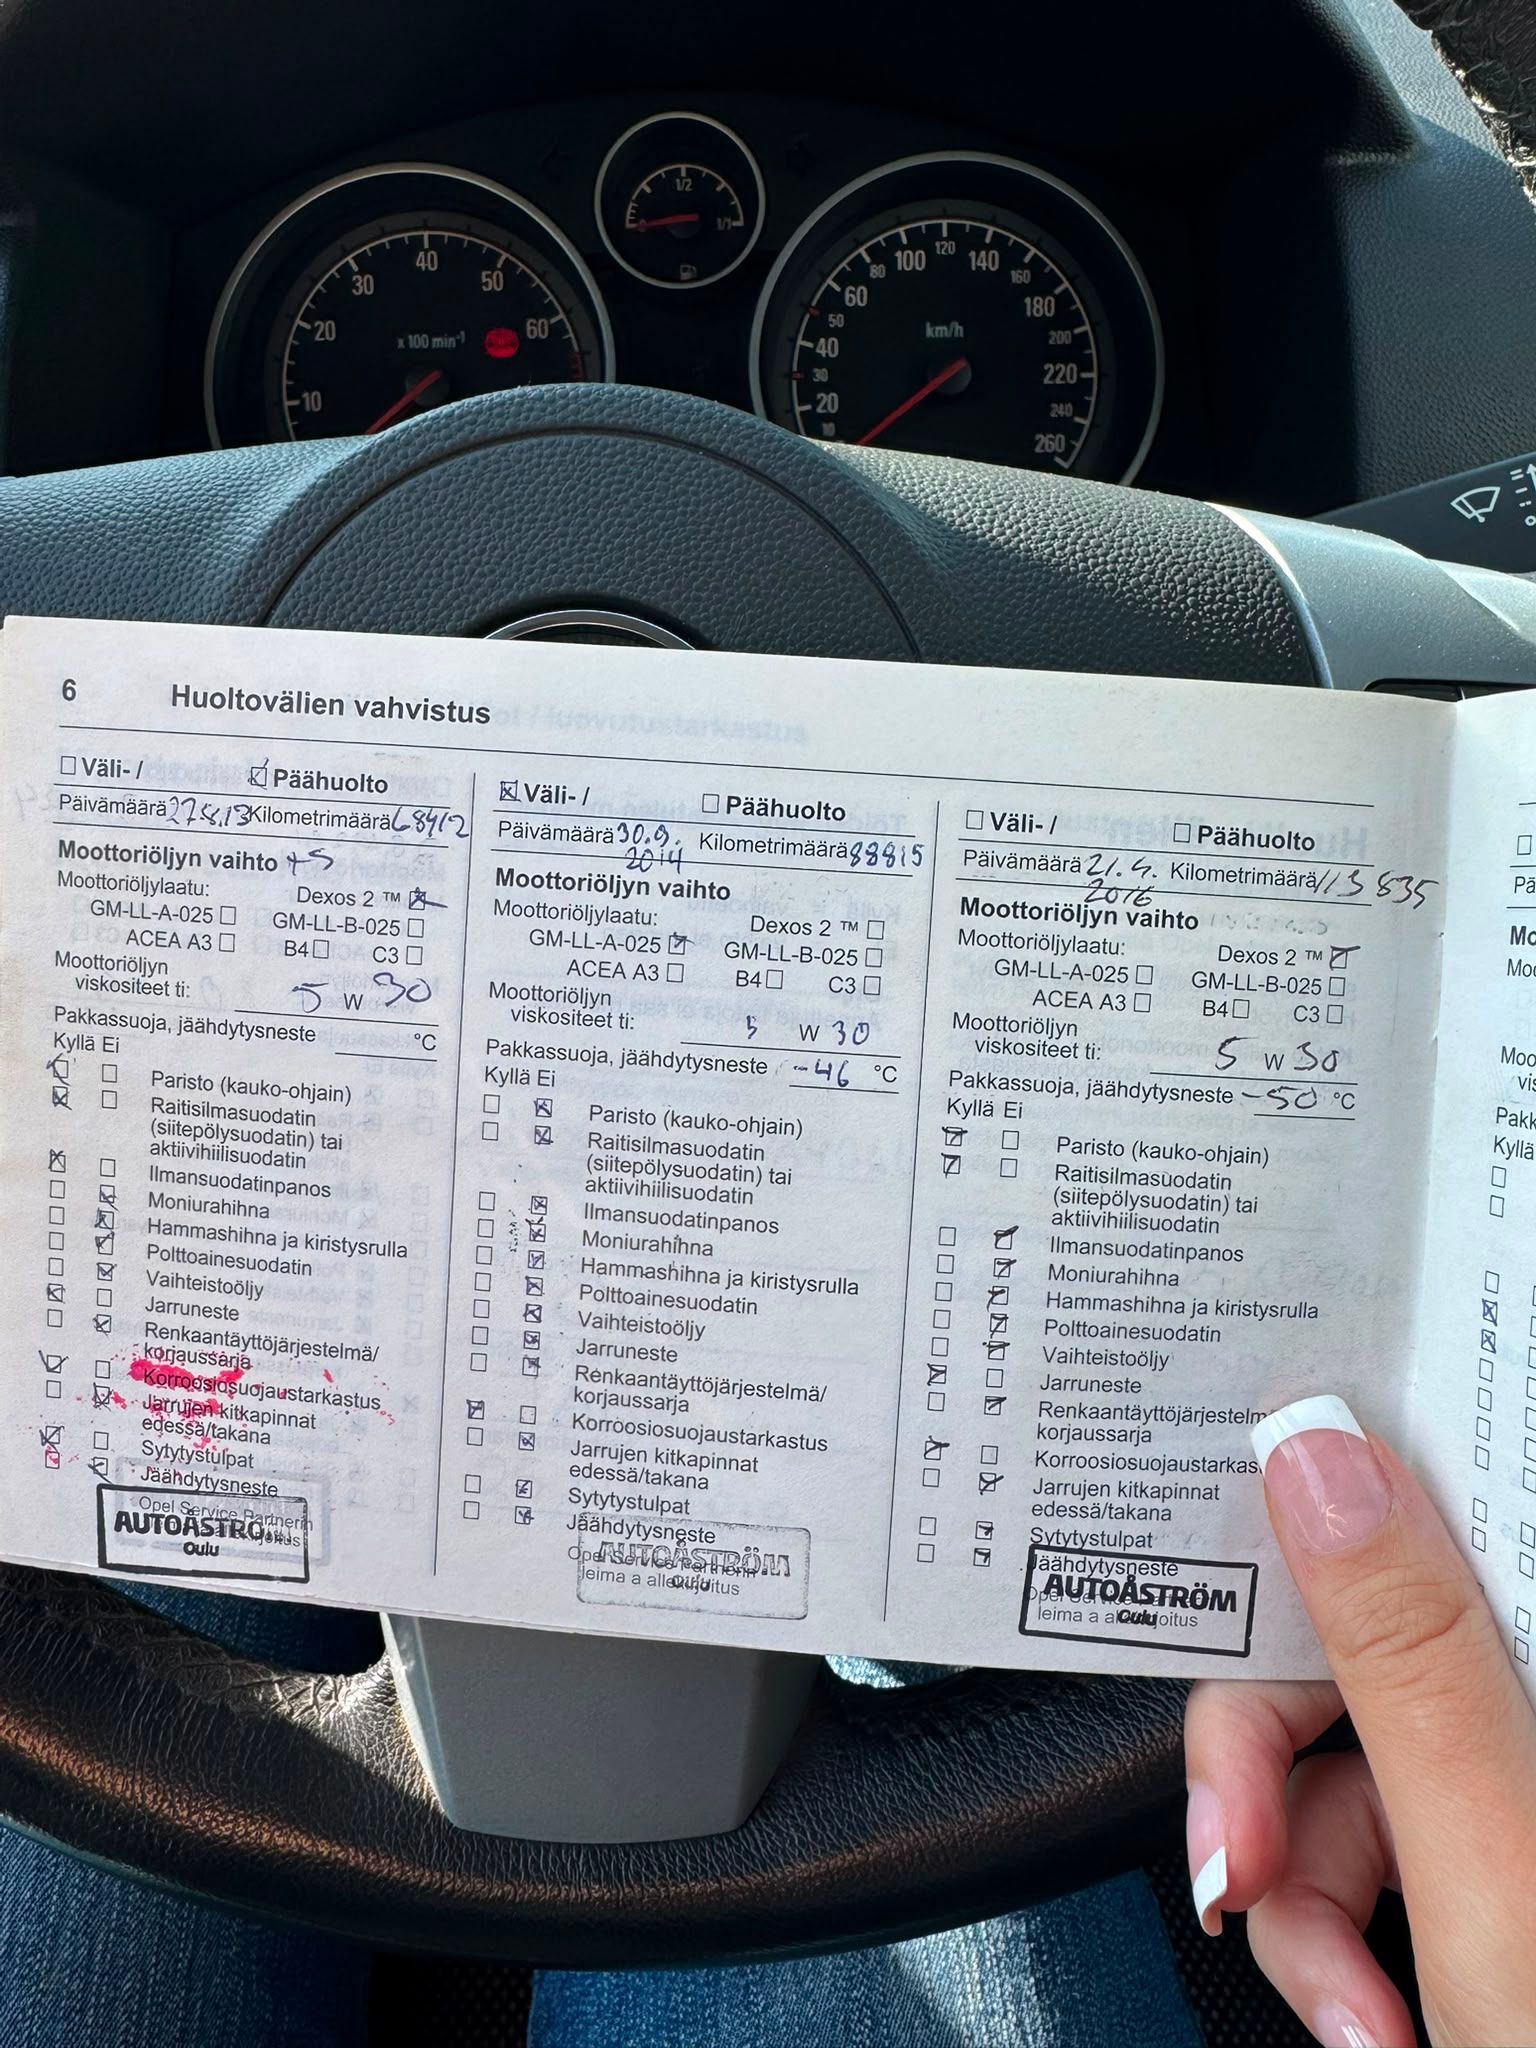 1/2
0
1/1
10
20
30
40
50
60
x 100 min⁻¹
10
20
30
40
50
60
80
100
120
140
160
180
200
220
240
260
km/h
6 Huoltovälien vahvistus
Väli- / Päähuolto
Päivämäärä 27.8.13 Kilometrimäärä 68412
Moottoriöljyn vaihto +S
Moottoriöljylaatu: Dexos 2 ™
GM-LL-A-025 GM-LL-B-025
ACEA A3 B4 C3
Moottoriöljyn
viskositeet ti: 5 W 30
Pakkassuoja, jäähdytysneste °C
Kyllä Ei
Paristo (kauko-ohjain)
Raitisilmasuodatin
(siitepölysuodatin) tai
aktiivihiilisuodatin
Ilmansuodatinpanos
Moniurahihna
Hammashihna ja kiristysrulla
Polttoainesuodatin
Vaihteistoöljy
Jarruneste
Renkaantäyttöjärjestelmä/
korjaussarja
Korroosiosuojaustarkastus
Jarrujen kitkapinnat
edessä/takana
Sytytystulpat
Jäähdytysneste
Opel Service Partnerin
AUTOÅSTRÖ
Oulu
Väli- / Päähuolto
Päivämäärä 30.9. Kilometrimäärä 88815
2014
Moottoriöljyn vaihto
Moottoriöljylaatu: Dexos 2 ™
GM-LL-A-025 GM-LL-B-025
ACEA A3 B4 C3
Moottoriöljyn
viskositeet ti: 5 W 30
Pakkassuoja, jäähdytysneste -46 °C
Kyllä Ei
Paristo (kauko-ohjain)
Raitisilmasuodatin
(siitepölysuodatin) tai
aktiivihiilisuodatin
Ilmansuodatinpanos
Moniurahihna
Hammashihna ja kiristysrulla
Polttoainesuodatin
Vaihteistoöljy
Jarruneste
Renkaantäyttöjärjestelmä/
korjaussarja
Korroosiosuojaustarkastus
Jarrujen kitkapinnat
edessä/takana
Sytytystulpat
Jäähdytysneste
AUTOÅSTRÖM
Opel Service Partnerin
Oulu
leima a allekirjoitus
Väli- / Päähuolto
Päivämäärä 21.4. Kilometrimäärä 113 835
2016
Moottoriöljyn vaihto
Moottoriöljylaatu: Dexos 2 ™
GM-LL-A-025 GM-LL-B-025
ACEA A3 B4 C3
Moottoriöljyn
viskositeet ti: 5 W 30
Pakkassuoja, jäähdytysneste -50 °C
Kyllä Ei
Paristo (kauko-ohjain)
Raitisilmasuodatin
(siitepölysuodatin) tai
aktiivihiilisuodatin
Ilmansuodatinpanos
Moniurahihna
Hammashihna ja kiristysrulla
Polttoainesuodatin
Vaihteistoöljy
Jarruneste
Renkaantäyttöjärjestelm
korjaussarja
Korroosiosuojaustarkas
Jarrujen kitkapinnat
edessä/takana
Sytytystulpat
Jäähdytysneste
AUTOÅSTRÖM
Oulu
leima a allekirjoitus